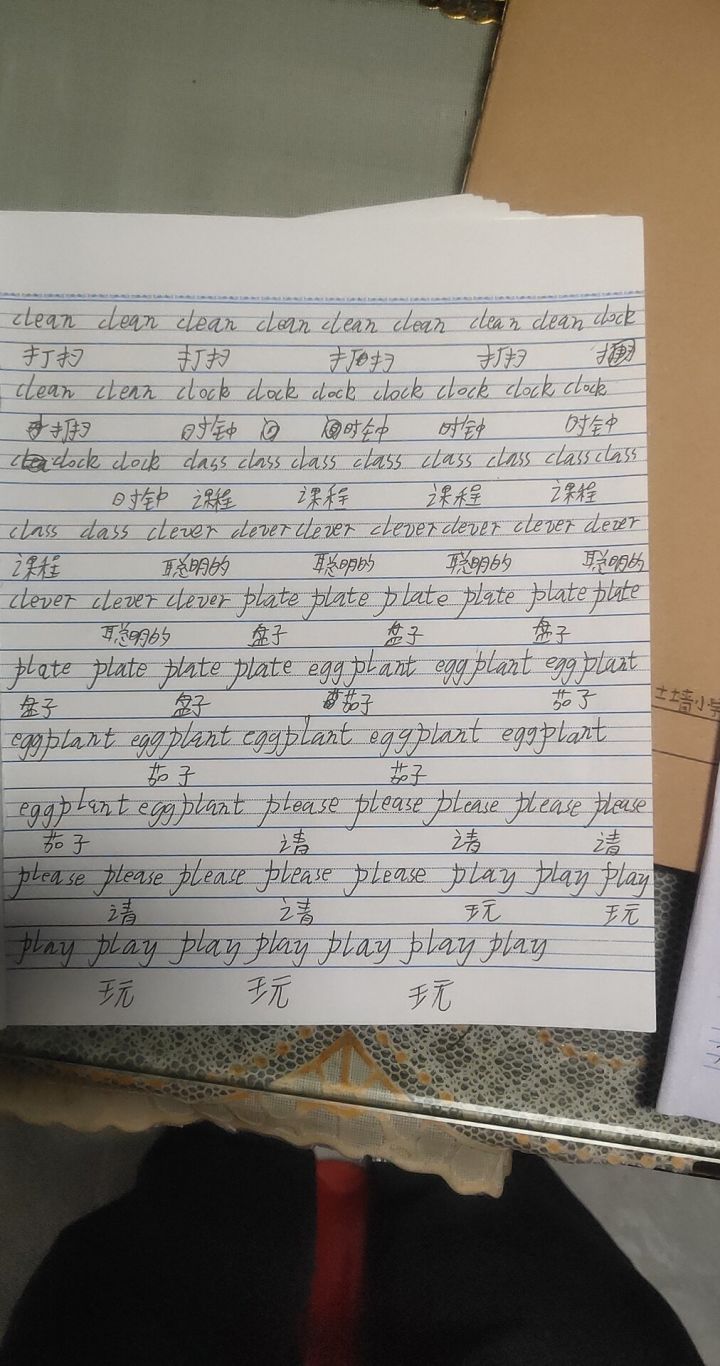 clean clean clean clean clean clean clean clean clock
打扫 打扫 打扫 打扫
clean clean clock clock clock clock clock clock clock
打扫 时钟 时钟 时钟 时钟
clock clock class class class class class class class class
时钟 课程 课程 课程 课程
class class clever clever clever clever clever clever clever
课程 聪明的 聪明的 聪明的 聪明的
clever clever clever plate plate plate plate plate plate
聪明的 盘子 盘子 盘子
plate plate plate plate eggplant eggplant eggplant
盘子 盘子 茄子 茄子
土墙小学
eggplant eggplant eggplant eggplant eggplant
茄子 茄子
eggplant eggplant please please please please please
茄子 请 请 请
please please please please please play play play
请 请 玩 玩
play play play play play play play
玩 玩 玩